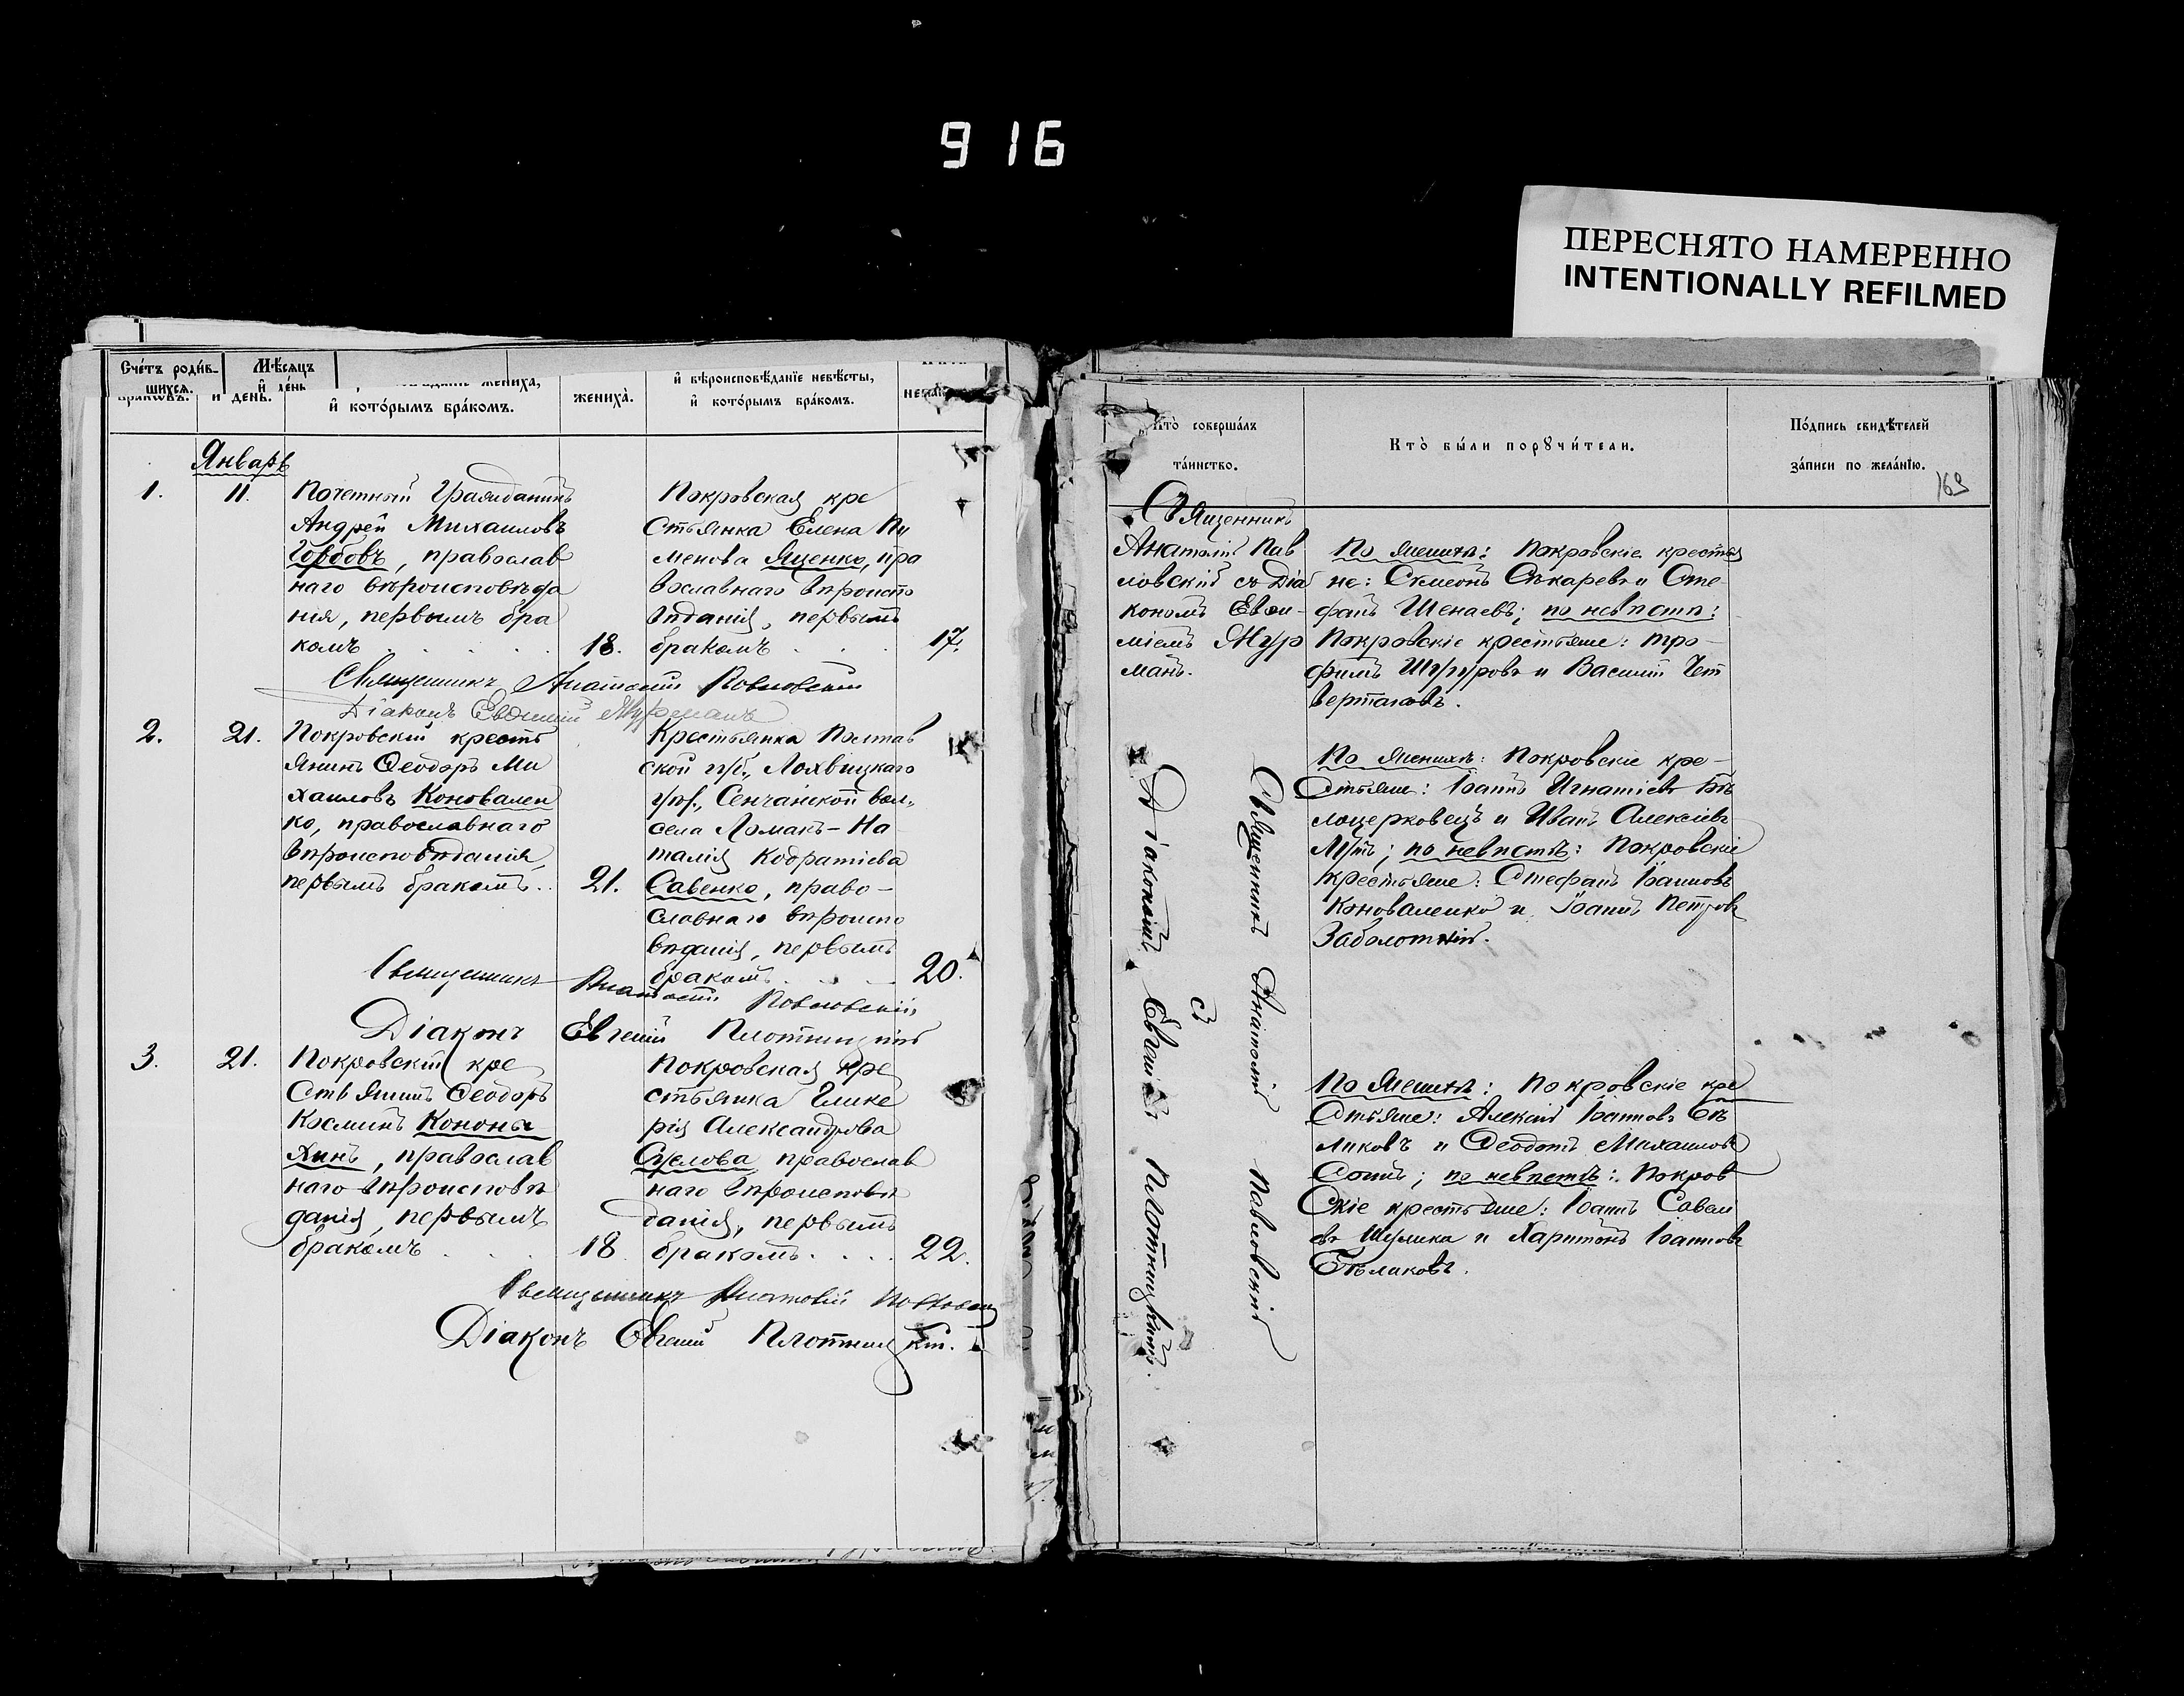 916
ПЕРЕСНЯТО НАМЕРЕННО
INTENTIONALLY REFILMED
Счетъ родив-
шихся.
Мѣсяцъ
и день
браковъ.
и день.
жениха,
и которымъ бракомъ.
жениха.
и вѣроисповѣданіе невѣсты,
и которымъ бракомъ.
Январь
1.
11.
Почетный Гражданинъ
Андрей Михаиловъ
Горбовъ, православ
наго вѣроисповѣда
нія, первымъ бра
комъ
18.
Покровская кре
стьянка Елена Пи
менова Яценко, пра
вославнаго вѣроиспо
вѣданія, первымъ
бракомъ
17.
Священникъ Анатолій Павловскій
Діаконъ Евѳимій Журманъ
2.
21.
Покровскій кресть
янинъ Ѳеодоръ Ми
хаиловъ Коновален
ко, православнаго
вѣроисповѣданія
первымъ бракомъ..
21.
Крестьянка Полтав
ской губ., Лохвицкаго
уѣз., Сенчанской вол.,
села Ломакъ - На
талія Кодратіева
Савенко, право-
славнаго вѣроиспо
вѣданія, первымъ
бракомъ
20.
Священникъ Анатолій Павловскій
Діаконъ Евгеній Плотницкій
3.
21.
Покровскій кре
стьянинъ Ѳеодоръ
Косминъ Кононы
хинъ, православ
наго вѣроисповѣ
данія, первымъ
бракомъ
18
Покровская кре
стьянка Глике
рія Александрова
Суслова православ
наго вѣроисповѣ
данія, первымъ
бракомъ
22.
Священникъ Анатолій Павловскій
Діаконъ Евгеній Плотницкій.
Кто совершалъ
таинство.
Кто были поручители.
Подпись свидѣтелей
записи по желанію.
169
Священникъ
Анатолій Пав
ловскій съ Діа
кономъ Евѳи-
міемъ Жур
манъ.
По женихѣ: Покровскіе крестья
не: Сѵмеонъ Сѣкаревъ и Сте-
фанъ Шенаевъ; по невѣстѣ:
Покровскіе крестьяне: Тро-
фимъ Шугуровъ и Василій Чет
вертаковъ.
Священникъ Анатолій Павловскій
съ
Діакономъ Евгеніемъ Плотницкимъ.
По женихѣ: Покровскіе кре-
стьяне: Іоаннъ Игнатіевъ Бѣ
лоцерковецъ и Иванъ Алексіевъ
по невѣстѣ: Покровскіе
крестьяне: Стефанъ Іоанновъ
Коноваленко и Іоаннъ Петровъ
Заболотній.
По женихѣ: Покровскіе кре
стьяне: Алексій Іоанновъ Бѣ
ликовъ и Ѳеодотъ Михаиловъ
по невѣстѣ: Покров
скіе крестьяне: Іоаннъ Савель
евъ Шулика и Харитонъ Іоанновъ
Бѣликовъ.